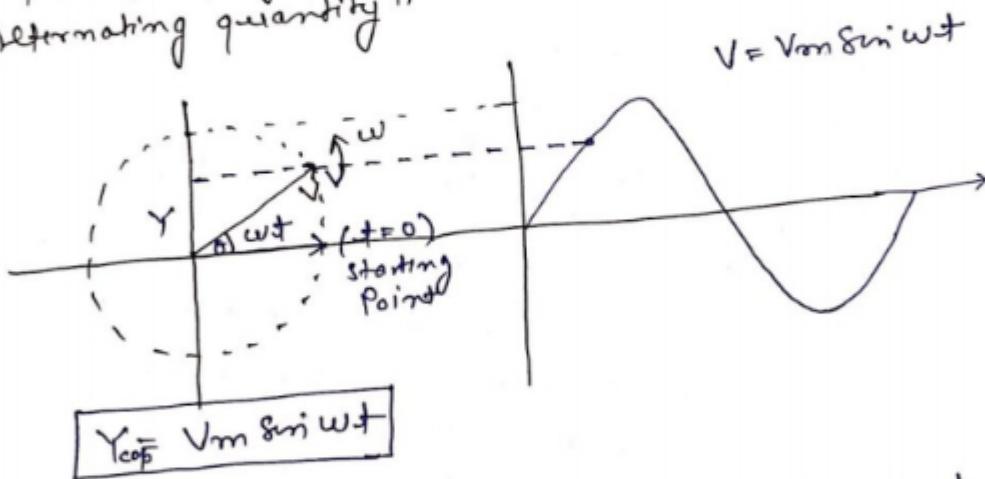 alternating quantity"
V = Vm Sin ωt
ω
V
Y
ωt (t=0)
starting
Point
= Vm Sin ωt